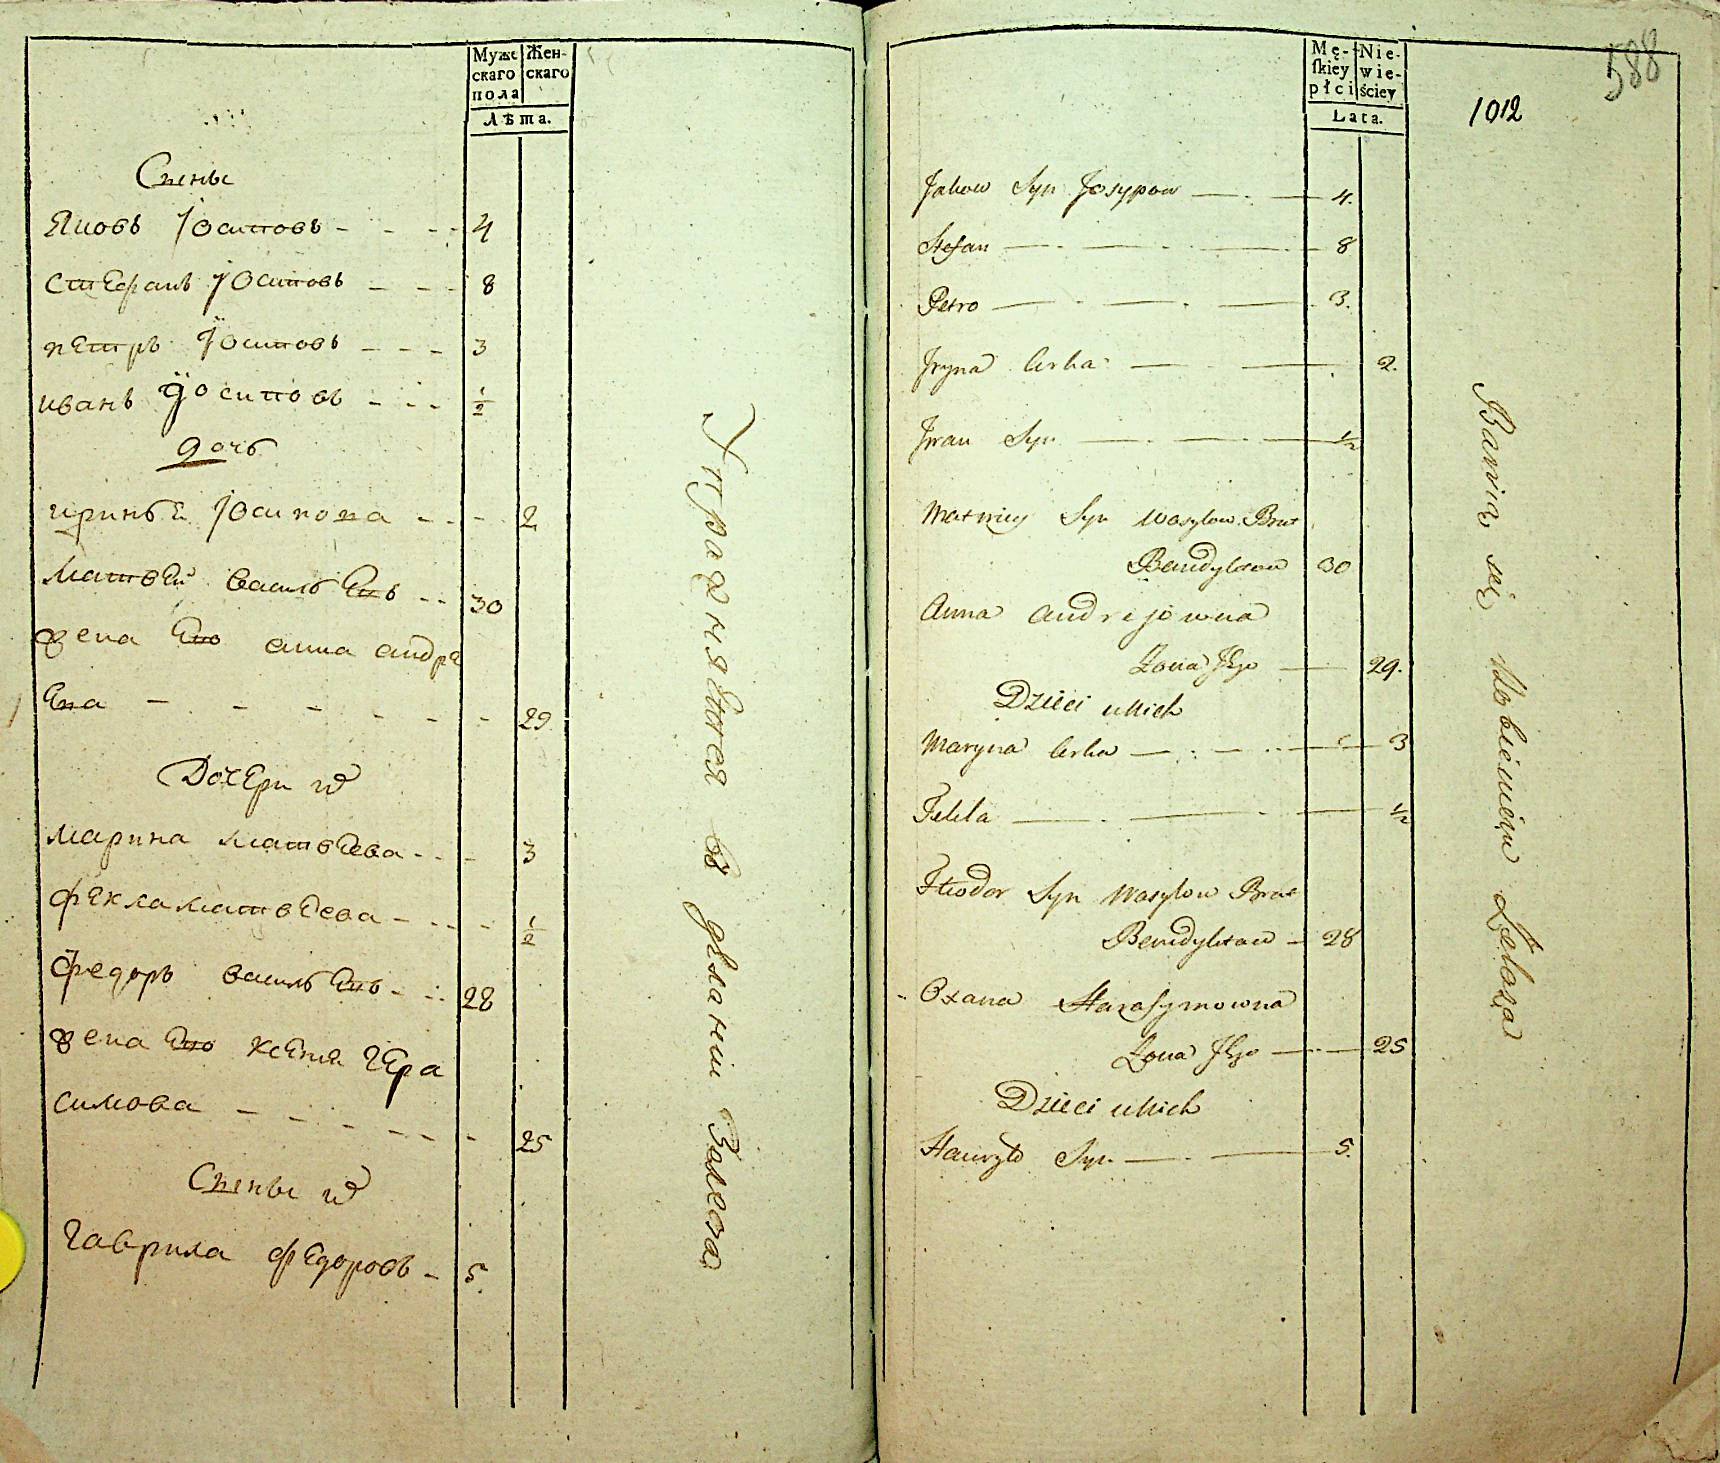 Мужескаго пола
Женскаго
Лѣта.
Сыны
Яковъ Іосиповъ - - - 4
Стефанъ Іосиповъ - - - 8
петръ Іосиповъ - - - 3
иванъ Іосиповъ - - - ½
дочь
Іосипова - - - 2
Матвей василь - - 30
жена его анна андре
ева - - - - - - 29
Дочери их
Марина матвеева - - - 3
фекла матвеева - - - ½
федоръ василь - - - 28
жена его ксения Гера
симова - - - - - - 25
Сыны их
Гаврила федоровъ - 5.
Упражняются в деланіи Железа
Mę-
ſkiey
płci
Nie-
wie-
ściey
Lata.
588
1012
Jakow Syn Josypow 4.
Stefan 8
Petro 3.
Iryna Corka 2.
Iwan Syn ½
Matwiey Syn Wasylow Brat
30
Anna Andrijowna
Zona Jego 29.
Dzieci u Nich
Maryna Corka 3
Fekla ½
Fteodor Syn Wasylow Brat
28
Oxana Harasymowna
Zona Jego 25
Dzieci u Nich
Hawryło Syn 5.
Bawią się Robieniem Żelaza